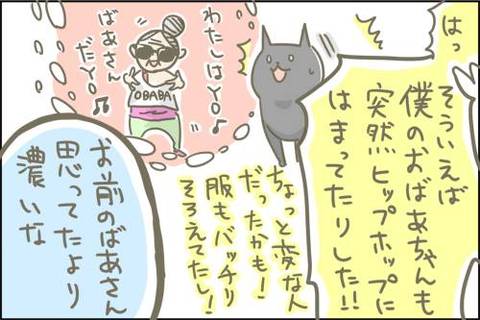 はっ
そういえば
僕のおばあちゃんも
突然ヒップホップに
はまってたりした!!
ちょっと変な人
だったかも!
服もバッチリ
そろえてたし!
わたしはYO♪
ばあさん
だYO♫
OBABA
お前のばあさん
思ってたより
濃いな